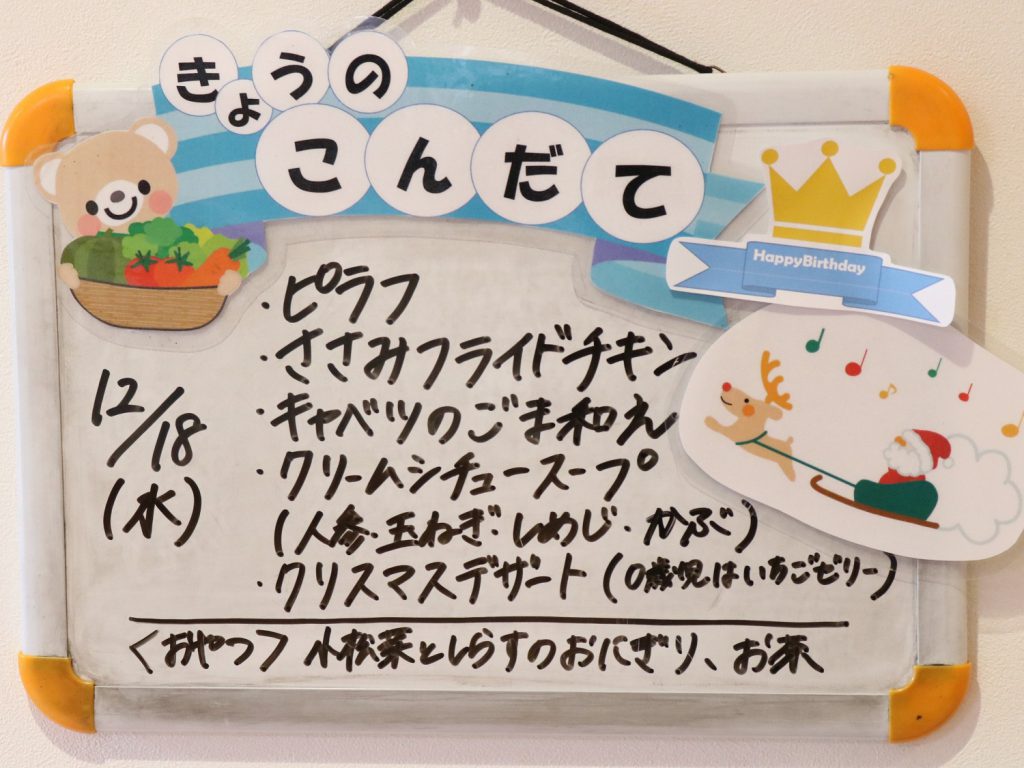 きょうの
こんだて
HappyBirthday
12/18
(水)
・ピラフ
・ささみフライドチキン
・キャベツのごま和え
・クリームシチュースープ
(人参・玉ねぎ・しめじ・かぶ)
・クリスマスデザート(0歳児はいちごゼリー)
<おやつ> 小松菜としらすのおにぎり、お茶